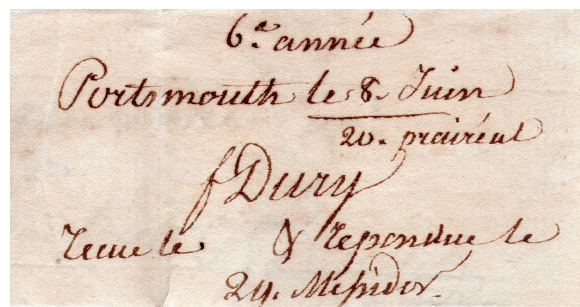 6.e année
Portsmouth le 8. Juin
20. prairéal
f Dury
reçue le & repondue le
24. Messidor.